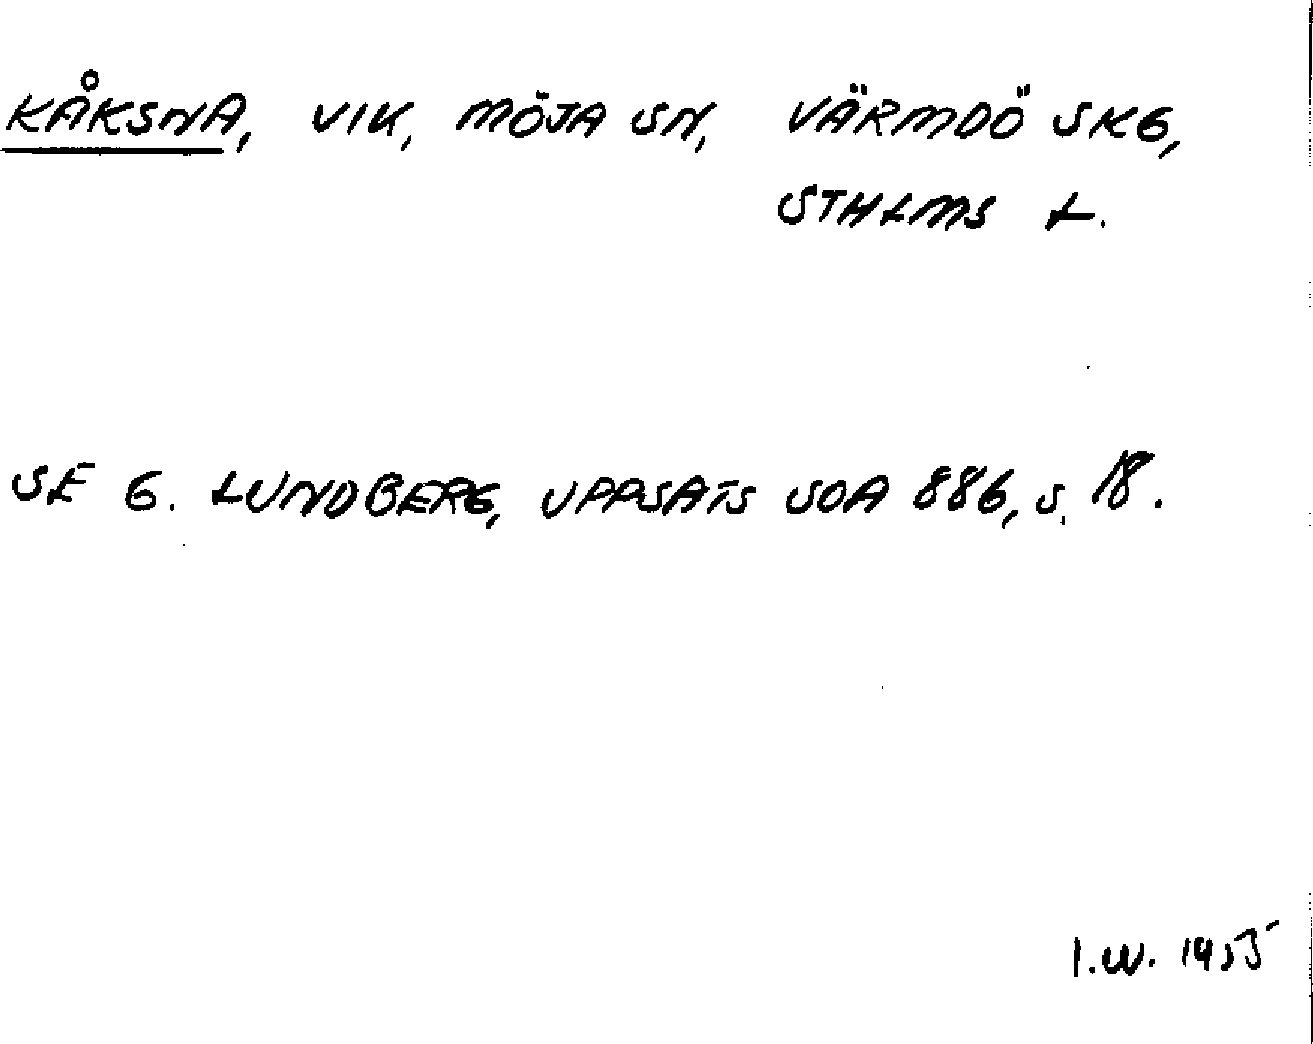 KÅKSNA, VIK, MÖJA SN, VÄRMDÖ SKG,
STHLMS L.
SE G. LUNDBERG, UPPSATS SOA 886, S. 18.
I.W. 1955